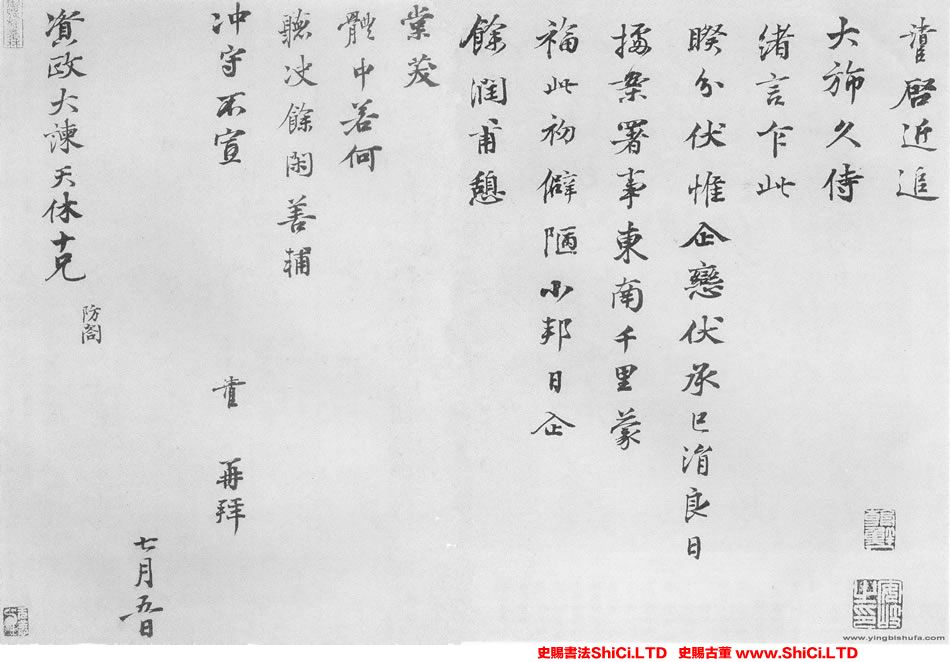 啓近追
大旆久侍
緒言乍此
睽分伏惟企戀伏承已涓良日
據案署事東南千里蒙
福此初僻陋小邦日企
餘潤甫憩
棠茇
體中若何
聽決餘閑善輔
冲守不宣
再拜
七月五日
資政大諫天休十兄
防閤
www.yingbishufa.com
史賜書法ShiCi.LTD 史賜古董 www.ShiCi.LTD